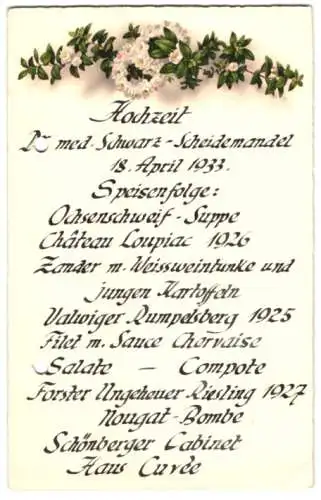 Hochzeit
Dr med. Schwarz - Scheidemandel
18. April 1933.
Speisenfolge:
Ochsenschweif - Suppe
Château Loupiac 1926
Zander m. Weissweintunke und
jungen Kartoffeln
Valwiger Rumpelsberg 1925
Filet m. Sauce Chorvaise
Salate — Compote
Forster Ungeheuer Riesling 1927
Nougat-Bombe
Schönberger Cabinet
Haus Cuvée